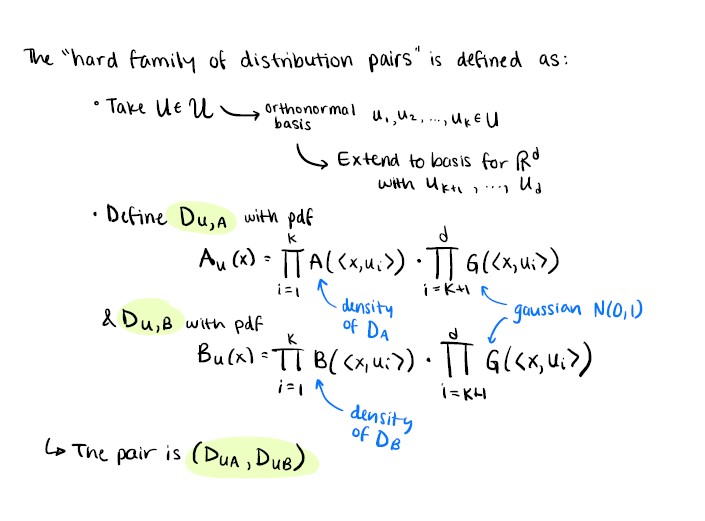 The "hard family of distribution pairs" is defined as:
• Take U ∈ 𝒰 → orthonormal basis u₁, u₂, ..., uₖ ∈ U
↳ Extend to basis for ℝᵈ
with uₖ₊₁, ..., u_d
• Define D_{U,A} with pdf
A_U(x) = ∏_{i=1}^{k} A(⟨x,uᵢ⟩) · ∏_{i=k+1}^{d} G(⟨x,uᵢ⟩)
density of D_A
gaussian N(0,1)
& D_{U,B} with pdf
B_U(x) = ∏_{i=1}^{k} B(⟨x,uᵢ⟩) · ∏_{i=k+1}^{d} G(⟨x,uᵢ⟩)
density of D_B
↳ The pair is (D_{UA}, D_{UB})